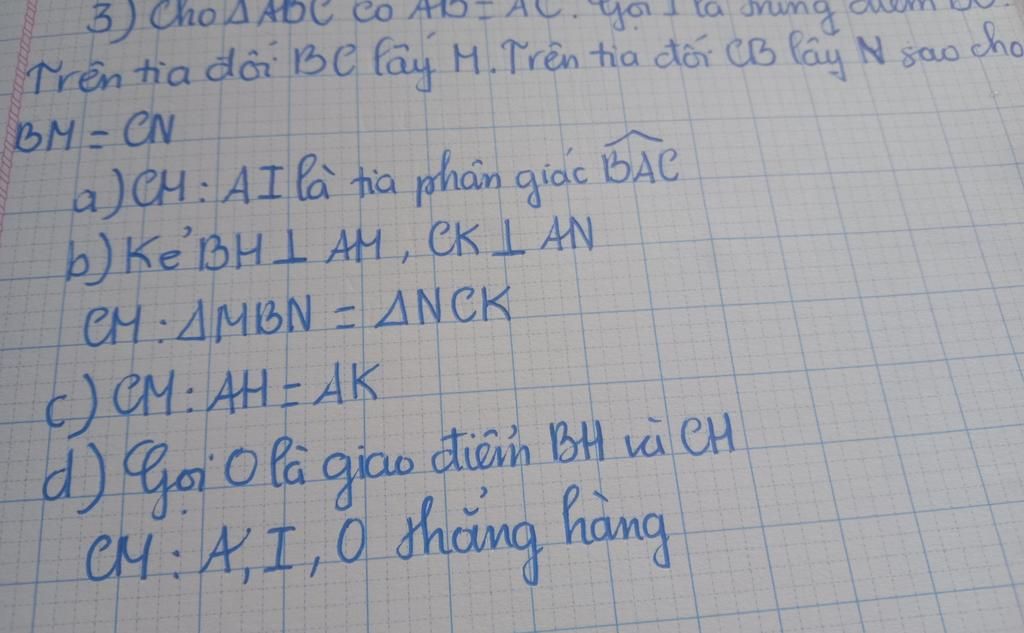 3) Cho ΔABC có AB = AC. Gọi I là trung điểm BC.
Trên tia đối BC lấy M. Trên tia đối CB lấy N sao cho
BM = CN
a) CM : AI là tia phân giác BAC
b) Kẻ BH ⊥ AM , CK ⊥ AN
CM : ΔMBN = ΔNCK
c) CM : AH = AK
d) Gọi O là giao điểm BH và CH
CM : A, I, O thẳng hàng